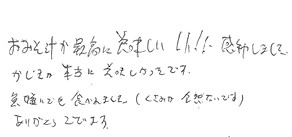 おみそ汁が最高に美味しい!!!! 感動しました
かじきが本当に美味しかったです。
魚嫌いでも食べれました(くさみが全然ないです)
ありがとうございます。